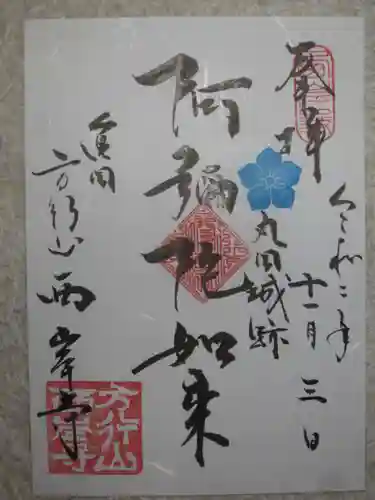 奉拝
令和二年
十一月三日
丸田城跡
阿彌陀如来
方行山 西岸寺
方行山
西岸寺